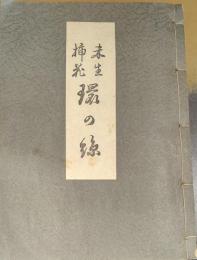 未生
挿花
環の絲